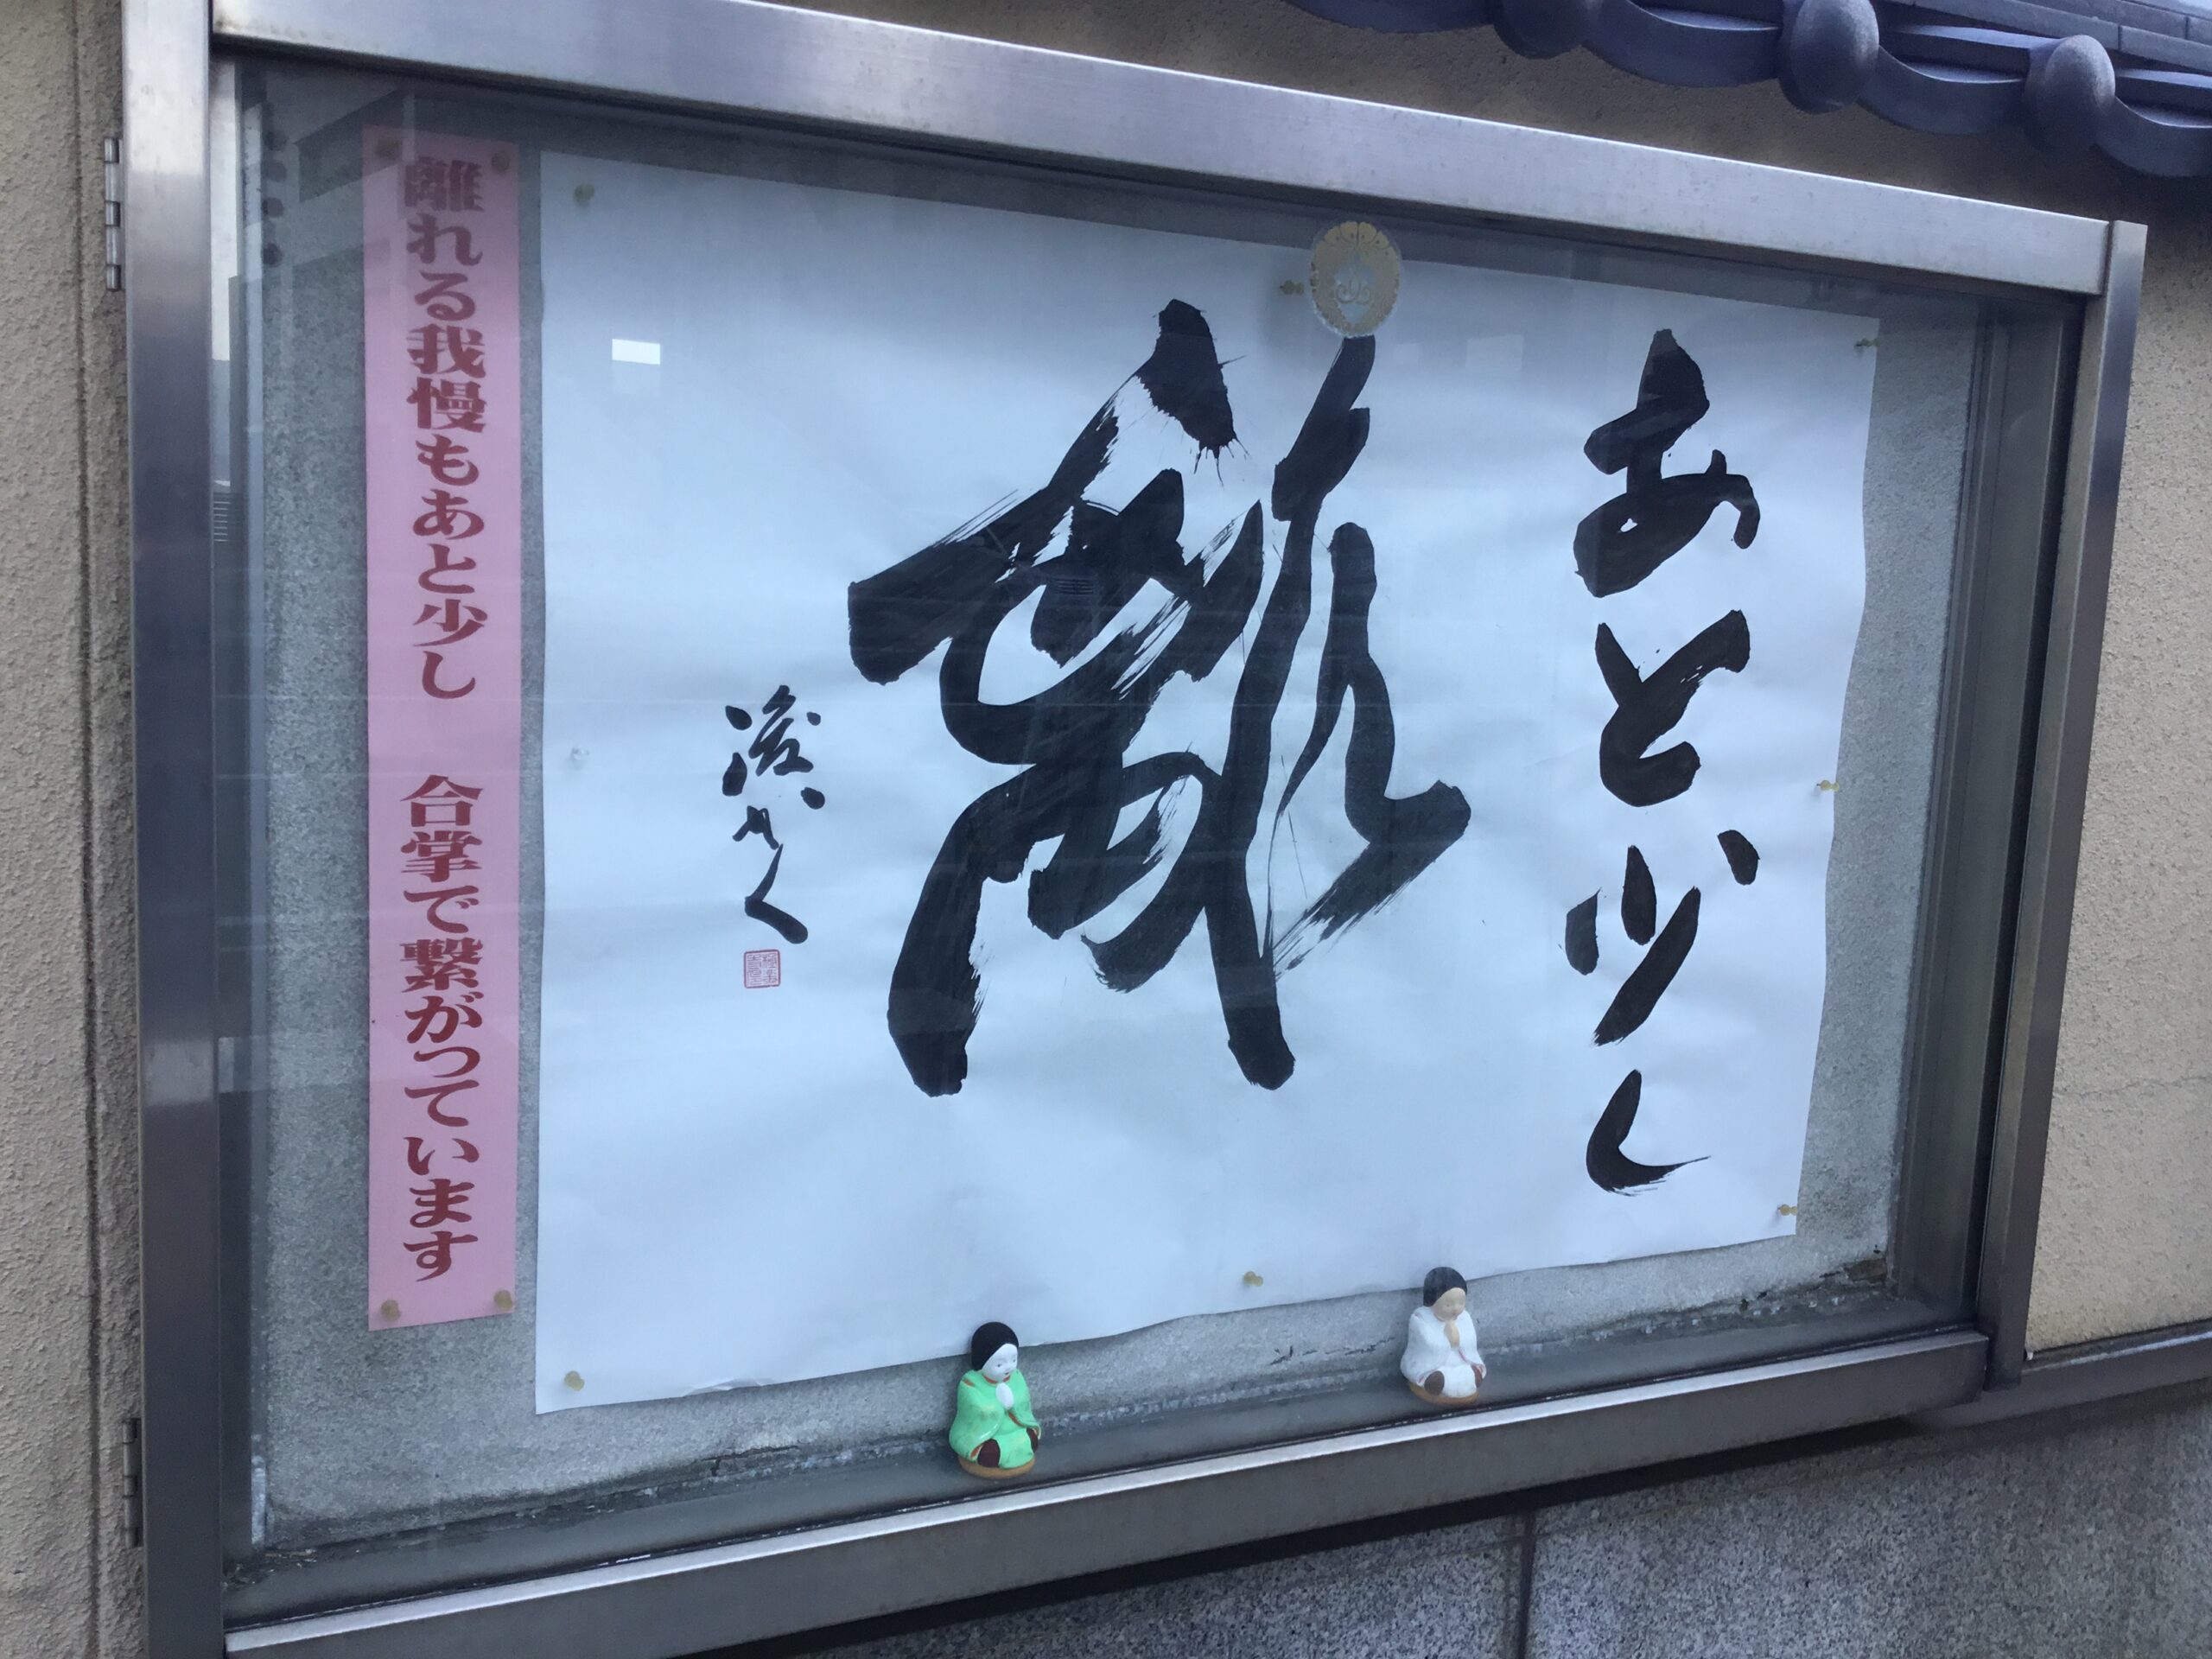 あと少し
離
離れる我慢もあと少し　合掌で繋がっています